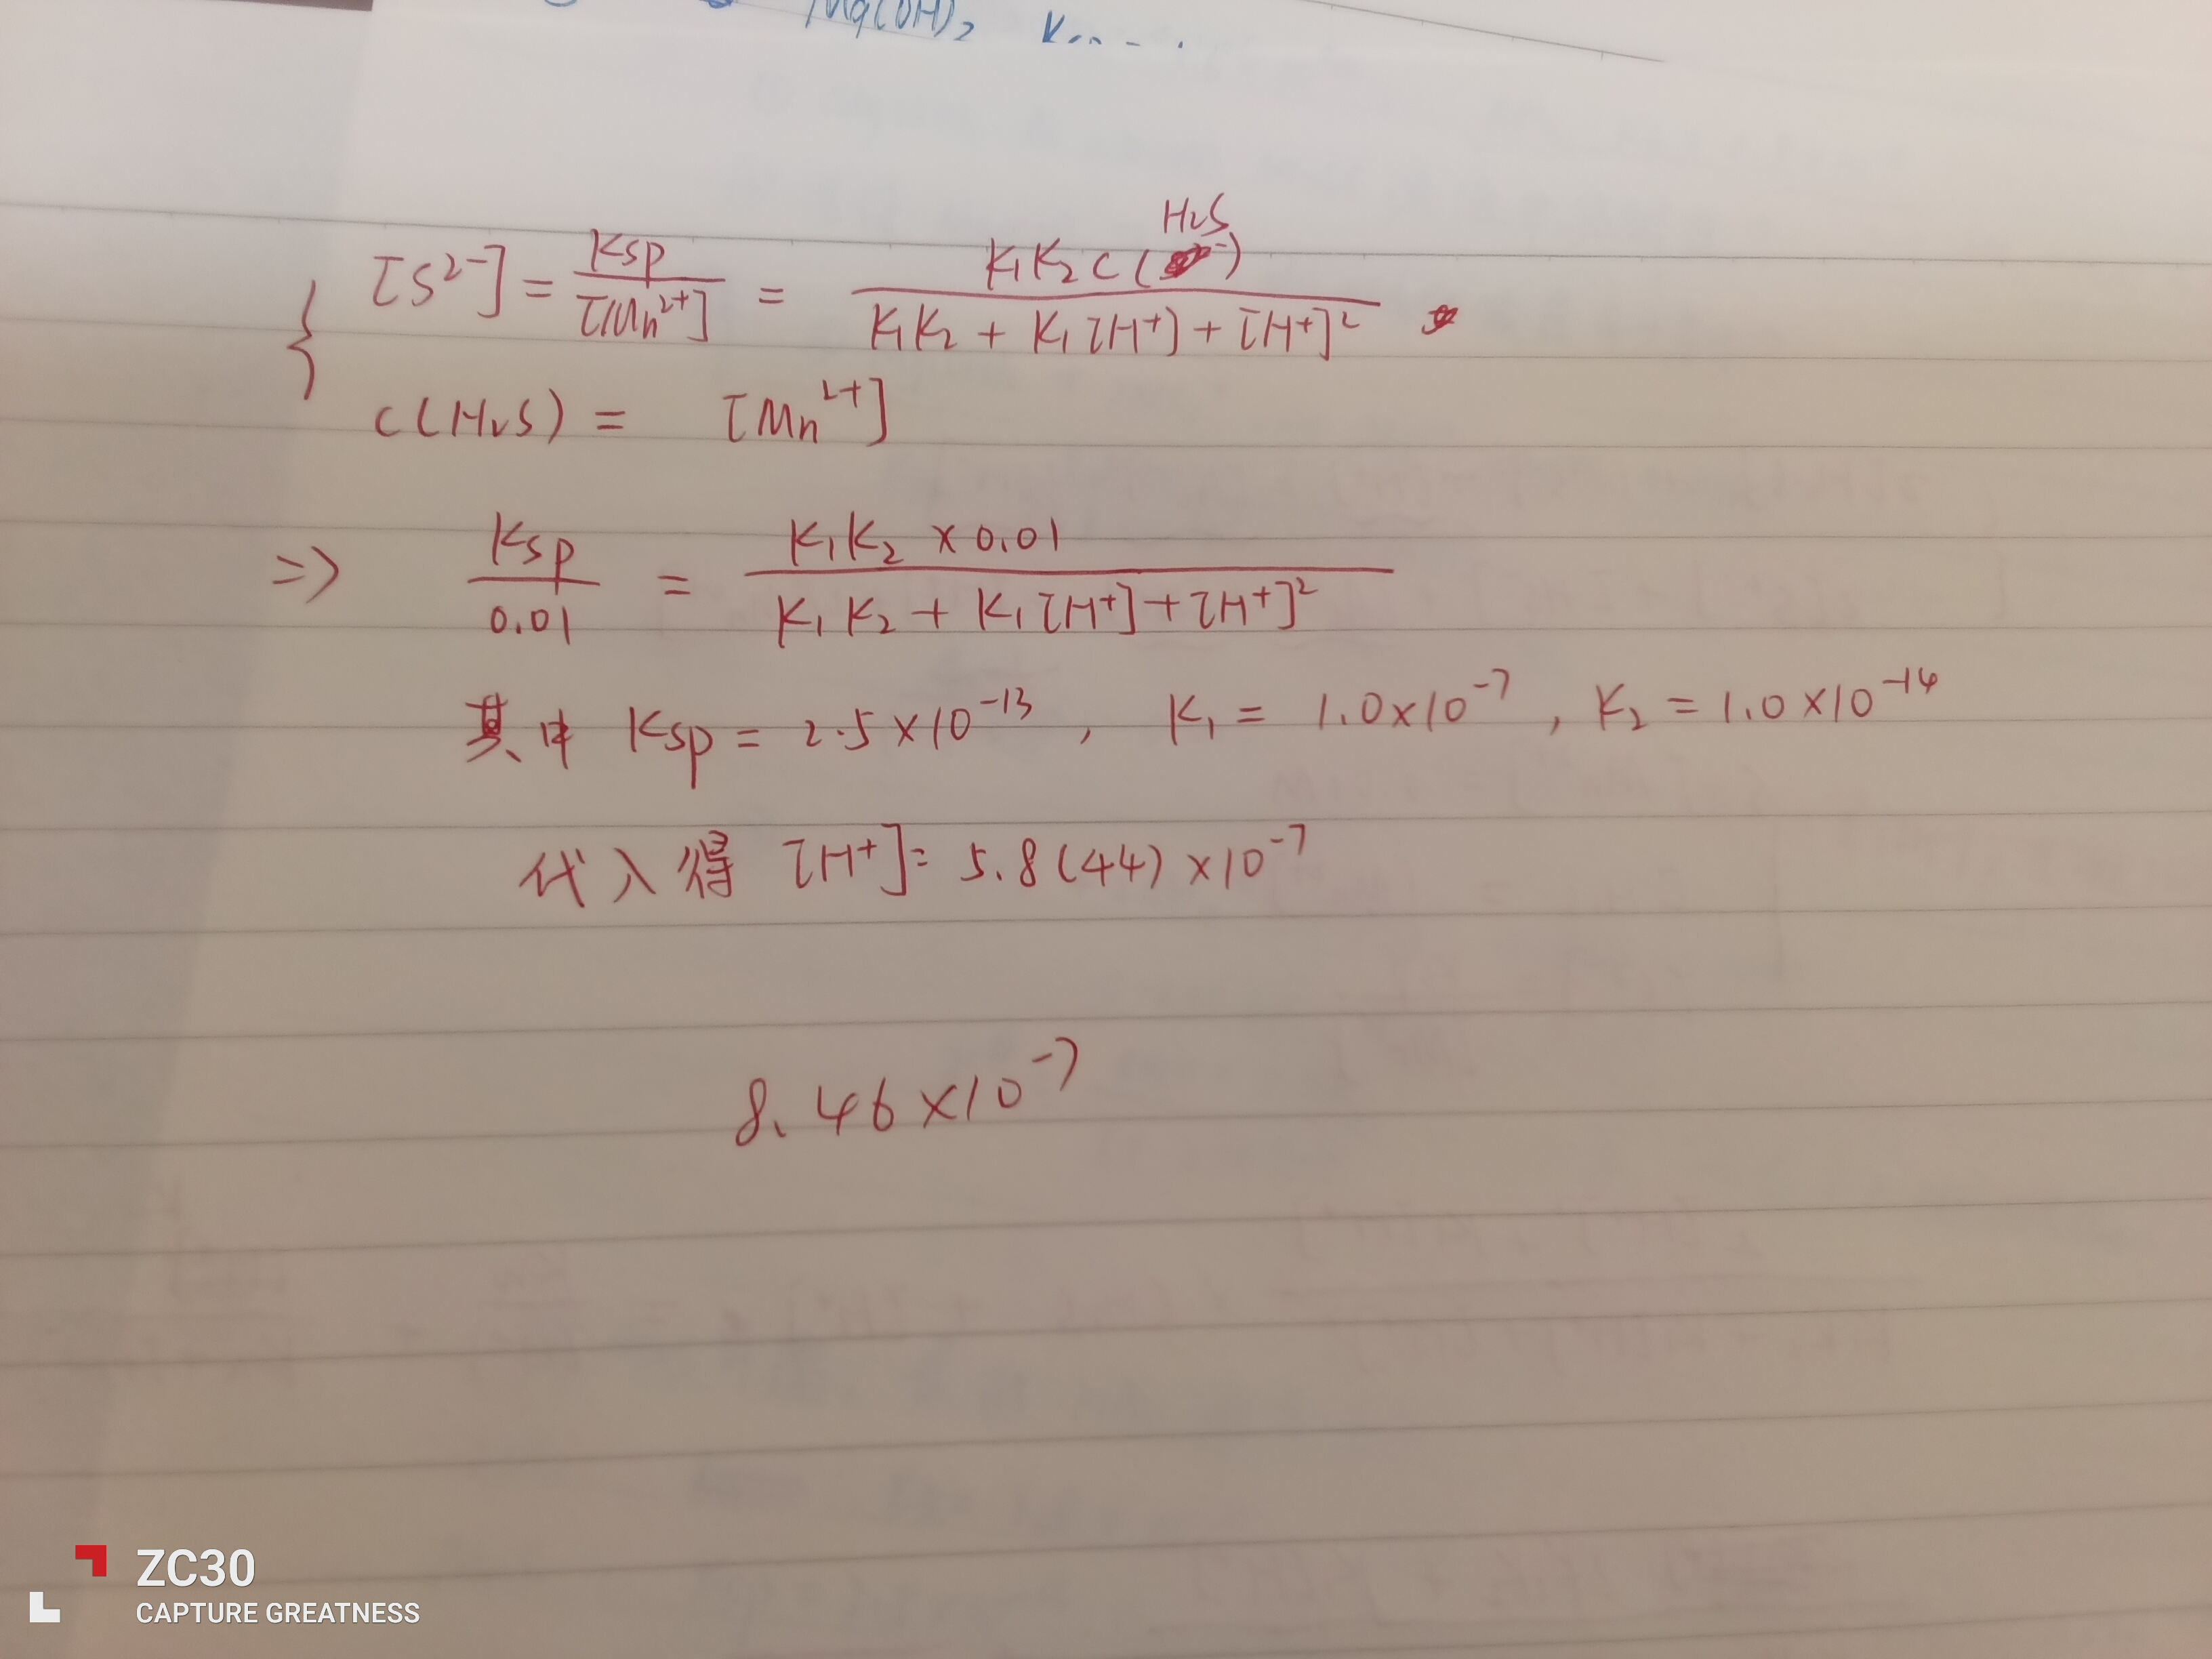 Mg(OH)2
[S2-] = Ksp/[Mn2+] = K1K2 c(H2S)/(K1K2 + K1[H+] + [H+]2)
c(H2S) = [Mn2+]
=> Ksp/0.01 = K1K2 × 0.01/(K1K2 + K1[H+] + [H+]2)
其中 Ksp = 2.5×10-13 , K1 = 1.0×10-7 , K2 = 1.0×10-14
代入得 [H+] = 5.8(44)×10-7
8.46×10-7
ZC30
CAPTURE GREATNESS